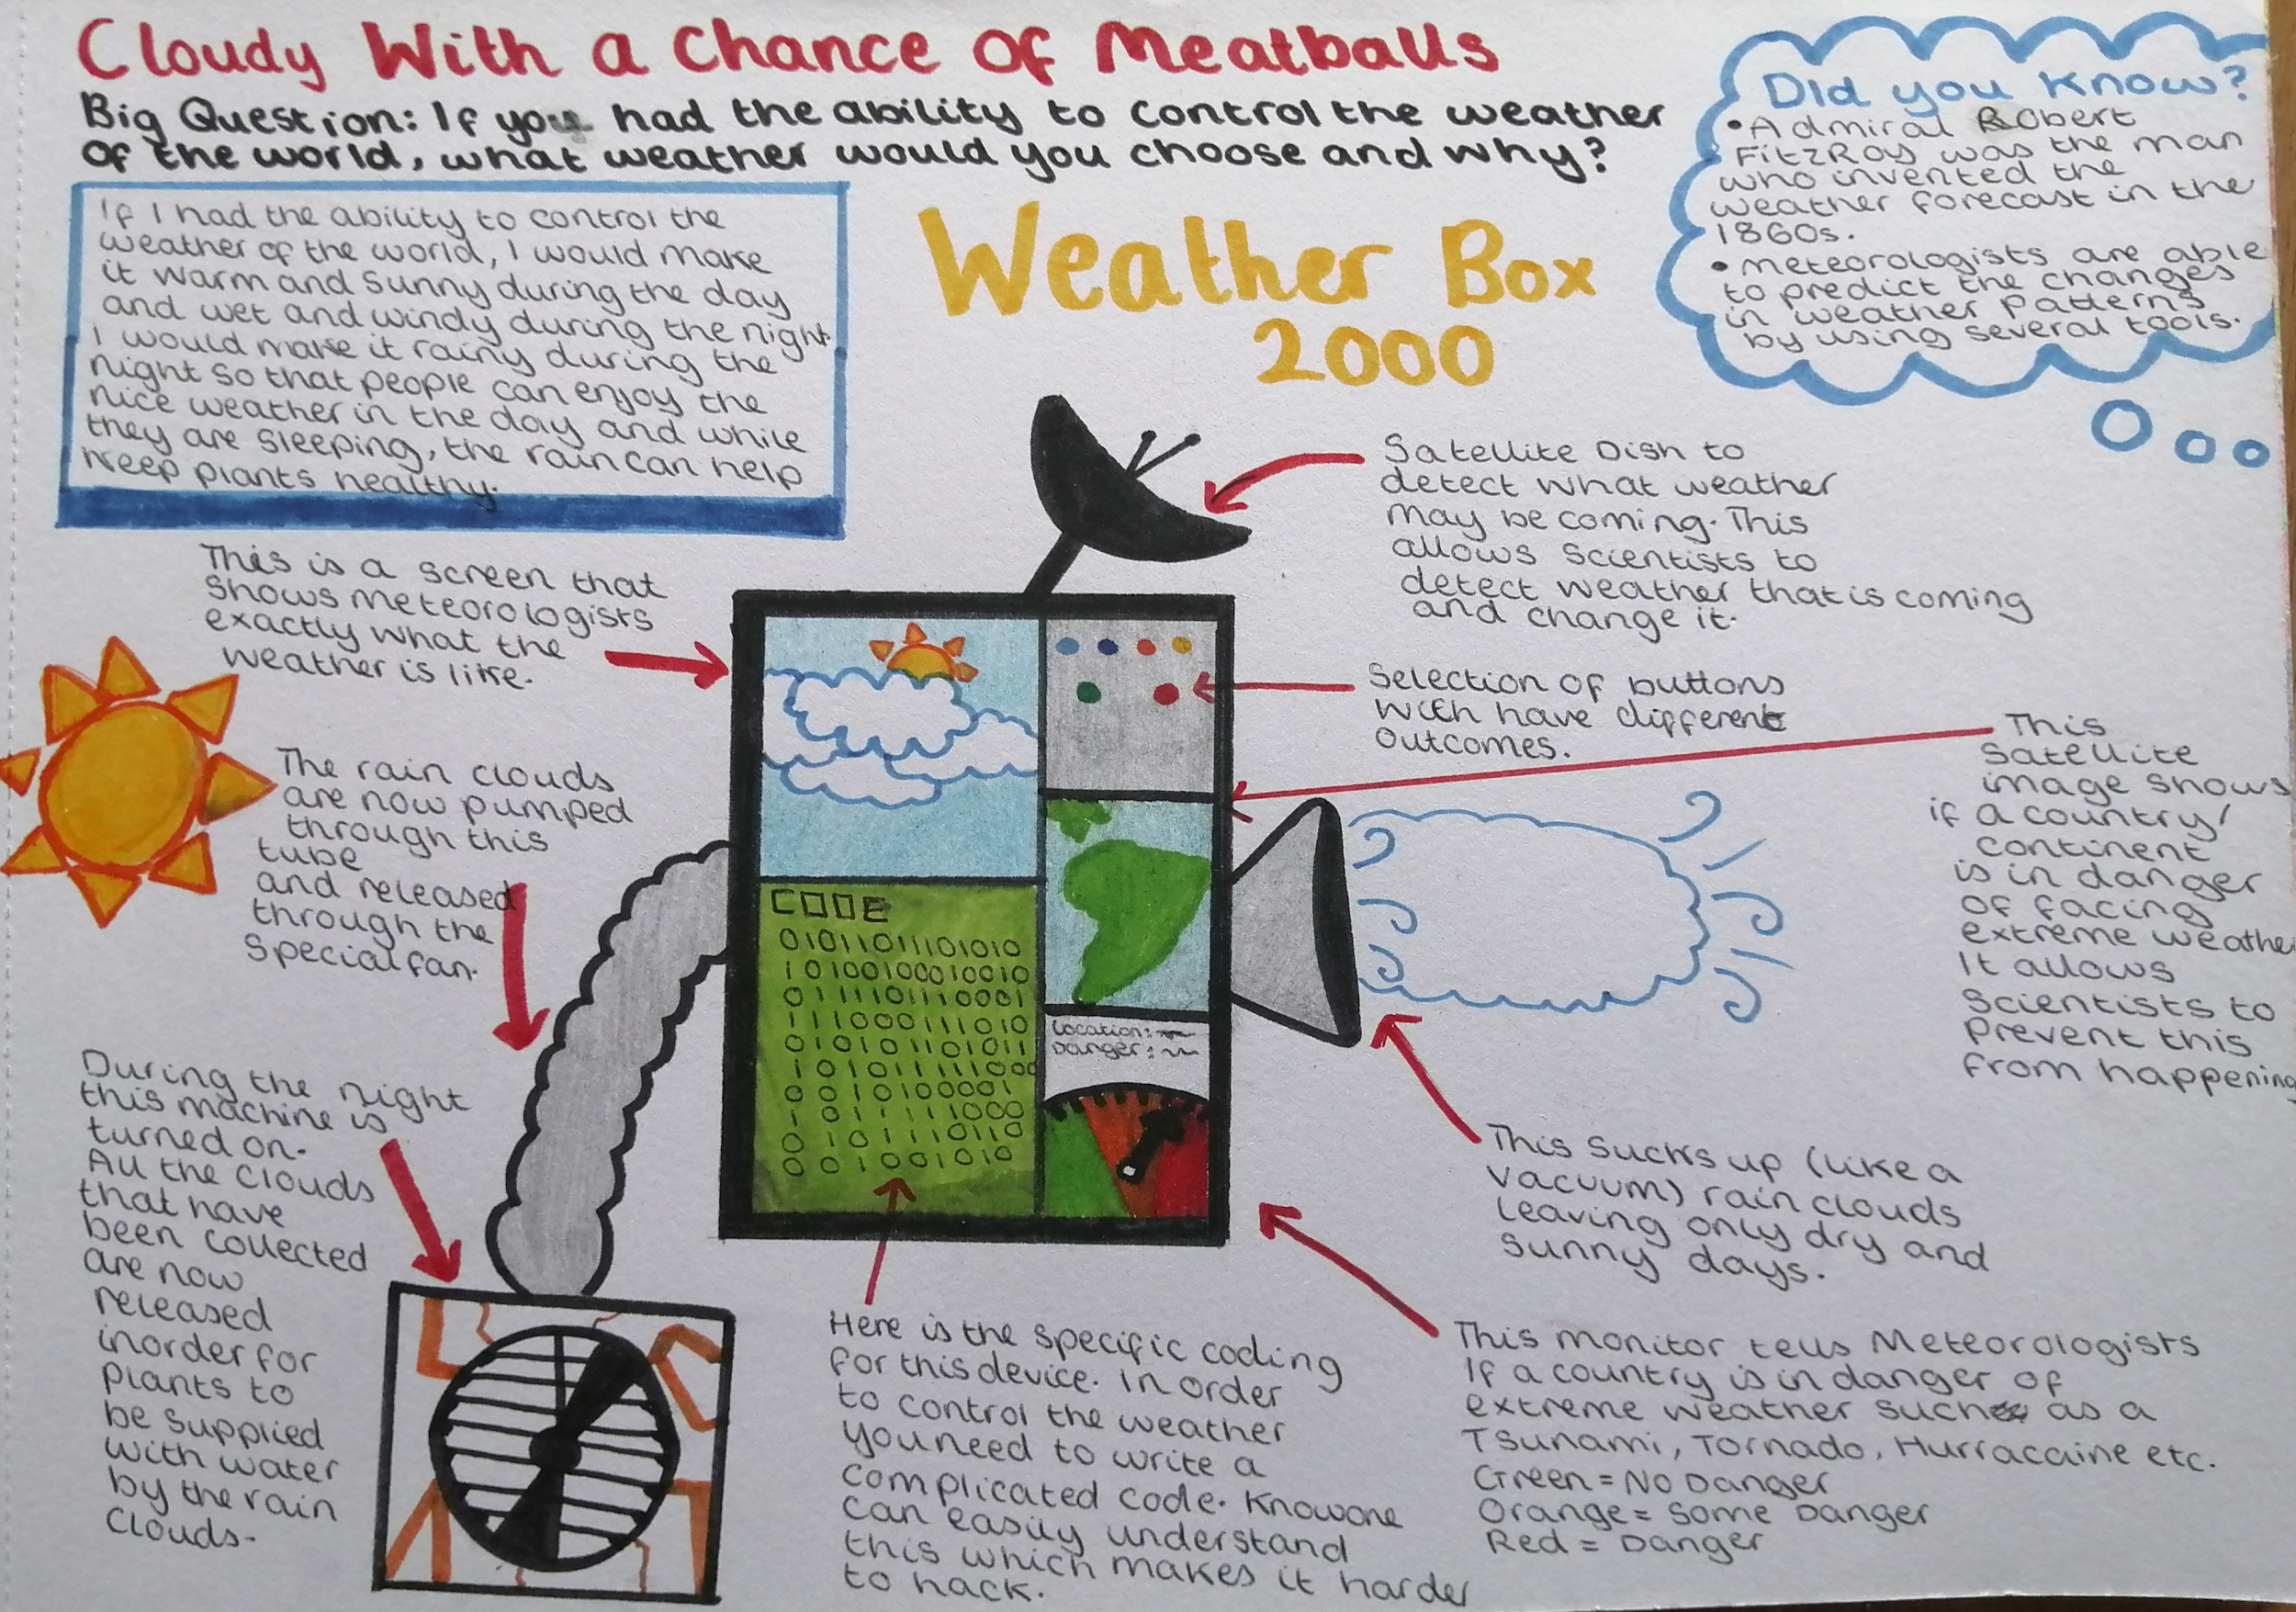 Cloudy With a Chance Of Meatballs
Big Question: If you had the ability to control the weather
of the world, what weather would you choose and why?
If I had the ability to control the
weather of the world, I would make
it warm and sunny during the day
and wet and windy during the night.
I would make it rainy during the
night so that people can enjoy the
nice weather in the day and while
they are sleeping, the rain can help
keep plants healthy.
Weather Box
2000
Did you know?
• Admiral Robert
FitzRoy was the man
who invented the
weather forecast in the
1860s.
• Meteorologists are able
to predict the changes
in weather patterns
by using several tools.
Satellite Dish to
detect what weather
may be coming. This
allows scientists to
detect weather that is coming
and change it.
This is a screen that
shows meteorologists
exactly what the
weather is like.
Selection of buttons
with have different
outcomes.
This
Satellite
image shows
if a country/
continent
is in danger
of facing
extreme weathe
It allows
scientists to
prevent this
from happening
The rain clouds
are now pumped
through this
tube
and released
through the
special fan.
CODE
010110111101010
101001000010010
01111011110001
111000111010
010101101011
101011111000
001010001
10111111000
01011110110
001001010
Location:
Danger:
During the night
this machine is
turned on.
All the clouds
that have
been collected
are now
released
inorder for
plants to
be supplied
with water
by the rain
clouds.
This sucks up (like a
vacuum) rain clouds
leaving only dry and
sunny days.
Here is the specific coding
for this device. In order
to control the weather
you need to write a
complicated code. Knowone
can easily understand
this which makes it harder
to hack.
This monitor tells Meteorologists
If a country is in danger of
extreme weather such as a
Tsunami, Tornado, Hurraccaine etc.
Green = No Danger
Orange = Some Danger
Red = Danger